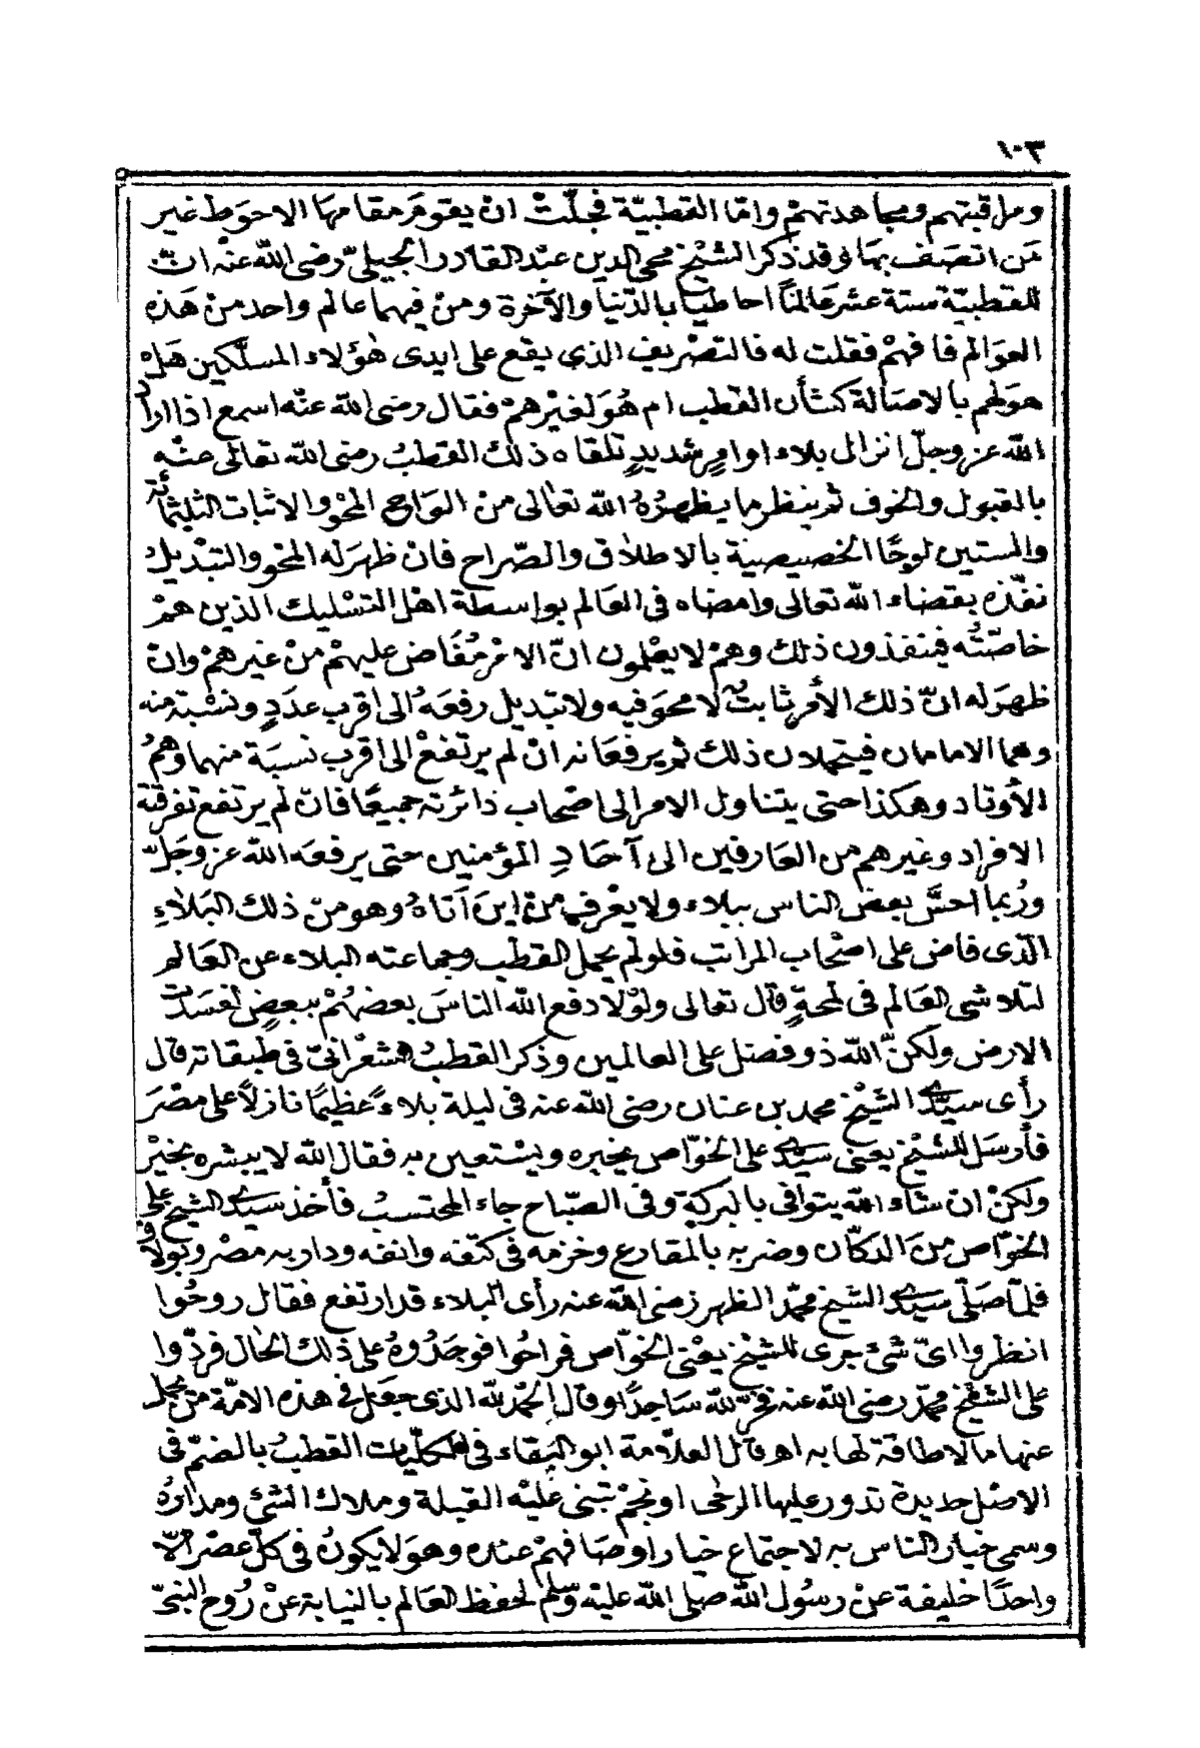 ١٠٣
ومراقبتهم ومجاهدتهم وامّا القطبيّة فجلّتْ انْ يقومَ مقامهَا الاحوَط غير
مَن اتصَف بهَا وقد ذكر الشيْخ محيى الدين عبْد القادر الجيليّ رضى الله عنْه انّ
للقطبيّة ستة عشر عَالمًا احاطيًّا بالدّنيَا والآخرة ومنْ فيهما عالم واحد منْ هَذه
العوَالم فافهمْ فقلت له فالتصْريف الذى يقع على ايدى هٰؤلاء المسلّكين هَلْ
هوَ لهم بالاصَالة كشأن القطب ام هُوَ لغيْرهمْ فقال رضى الله عنْه اسمع اذا اراد
الله عزوجلّ انزال بلاء اوامرٍ شديدٍ تلقاه ذلك القطبُ رضى الله تعالى عنْه
بالقبول والخوف ثم ينظر ما يظهرُهُ الله تعالى منْ الوَاح المحْو والاثبات الثلثمائة
والستين لوحًا الخصيصيّة بالاطلاق والصّراح فانْ ظهرَ له المحْو والتبْديل
نفّذه بقضاء الله تعالى وامضاه فى العَالم بواسطة اهْل التسْليك الذين همْ
خاصّتُه فينفذون ذلك وهمْ لا يعْلمون انّ الامْر مُفَاض عليهمْ منْ غيرهمْ وانْ
ظهرَ له انّ ذلك الأمر ثابتٌ لا محوَ فيه ولا تبديل رفعَهُ الى اقرب عدَدٍ ونسْبة منه
وهما الامامان فيتحملان ذلك ثم يرفعَانه انْ لم يرتفعْ الى اقرب نسبَة منهما وهمُ
الأوتاد وهكذا حتى يتناول الامر الى اصْحاب دائرته جميعًا فانْ لم يرتفع تفرقتهُ
الافراد وغيرهم من العَارفين الى آحَادِ المؤمنين حتى يرفعَه الله عزوجَلّ
ورُبما احسَّ بعضُ الناس ببلاء ولا يعْرف من اينَ اَتاهُ وهو منْ ذلك البَلاءِ
الّذى فاض على اصْحاب المراتب فلو لم يحمل القطب وجماعته البلاء عن العَالم
لتلاشى العَالم فى لمحةٍ قال تعالى ولوْلا دفع الله الناسَ بعضهُمْ ببعضٍ لفسَدت
الارض ولكنّ الله ذو فضل على العالمين وذكر القطبُ الشعْرَانىّ فى طبقاته قال
رأى سيّدى الشيْخ محمد بن عنان رضى الله عنه فى ليلة بلاءً عظيمًا نازلاً على مصْرَ
فأرسَل للشيْخ يعْنى سيّدى على الخوّاص يخبره ويسْتعين به فقال الله لا يبشره بخيْر
ولكنْ ان شاء الله يتوافى بالبركة وفى الصبّاح جاء المحتسبُ فأخذ سيّدى الشيخ على
الخوّاص منَ الدكّان وضربه بالمقارع وخزمه فى كتفه وانفه ودار به مصْر وبولاق
فلمّا صَلّى سيّدى الشيْخ محمّد الظهر رضى الله عنه رأى البلاء قد ارتفع فقال روحُوا
انظروا اىّ شئ جرى للشيْخ يعْنى الخوّاص فراحُوا فوجَدُوهُ على ذلك الحال فردّوا
على الشيْخ محمّد رضى الله عنه فخرّ لله سَاجدًا وقال الحمْد لله الذى جعَل فى هذه الامّة منْ يحمل
عنها ما لا طاقة لها به اهـ قال العلاّمة ابو البقاء فى الكلّيات القطبُ بالضمّ فى
الاصْل حديدة تدور عليها الرحٰى او نجمْ تبنى عليْه القبلة وملاك الشئ ومدَارُهُ
وسمى خيار الناس به لاجتماع خيار اوصَافهمْ عنده وهوَ لا يكونُ فى كلّ عصْر الّا
واحدًا خليفة عنْ رسُول الله صلى الله عليْه وسلم لحفظ العَالم بالنيابة عنْ رُوح النبىّ